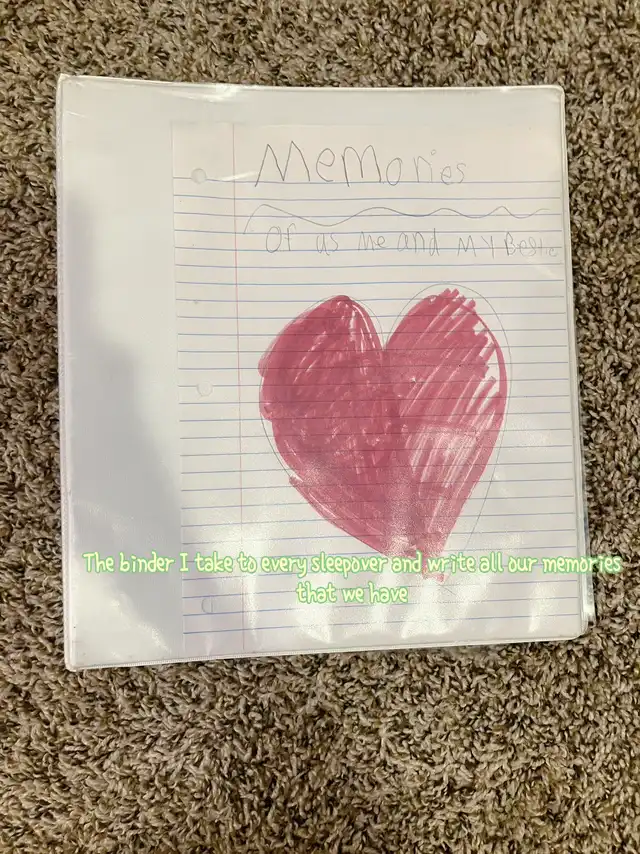 Memories
Of us me and My Bestie
The binder I take to every sleepover and write all our memories
that we have